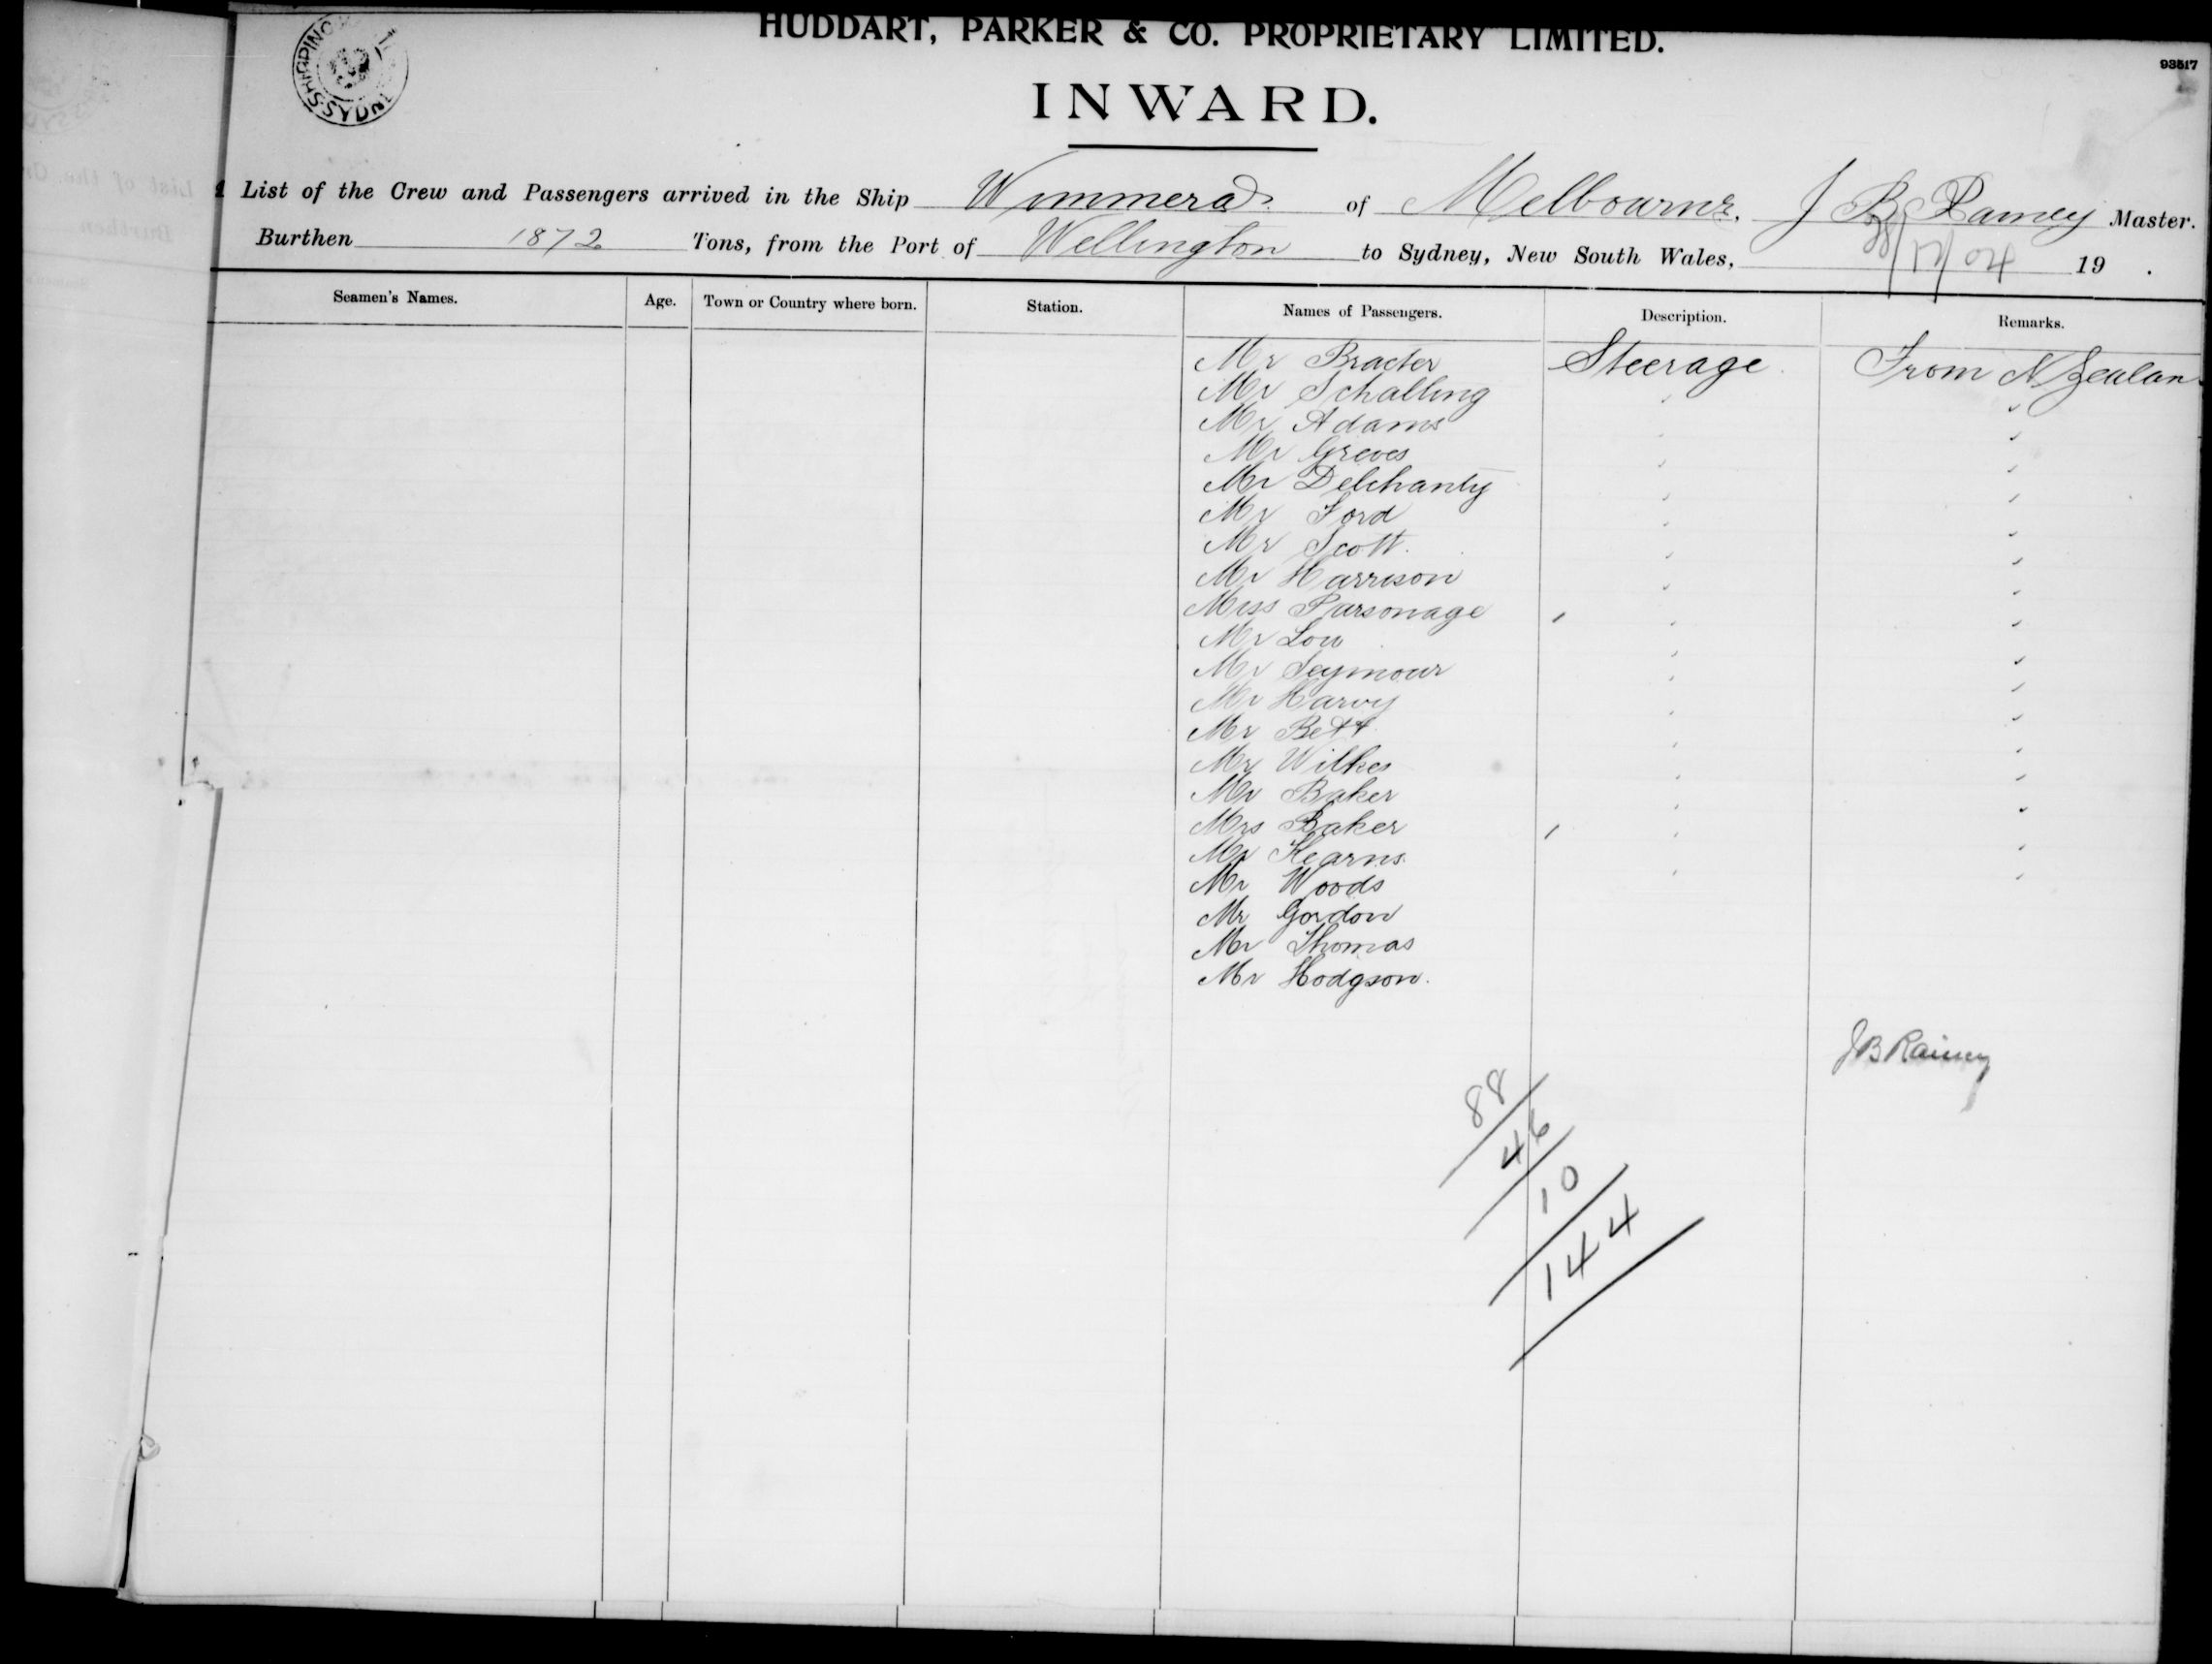 HUDDART, PARKER & CO. PROPRIETARY LIMITED.
93517
INWARD.
List of the Crew and Passengers arrived in the Ship Wimmera of Melbourne, J B Rainey Master.
Burthen 1872 Tons, from the Port of Wellington to Sydney, New South Wales, 19 .
Seamen's Names. Age. Town or Country where born. Station. Names of Passengers. Description. Remarks.
Mr Bracter Steerage From N Zealan
Mr Schalling
Mr Adams
Mr Greves
Mr Delehanty
Mr Ford
Mr Scott.
Mr Harrison
Miss Parsonage
Mr Low
Mr Seymour
Mr Harvy
Mr Bett
Mr Wilkes
Mr Baker
Mrs Baker
Mr Kearns.
Mr Woods
Mr Gordon
Mr Thomas
Mr Hodgson.
JB Rainey
88
46
10
144